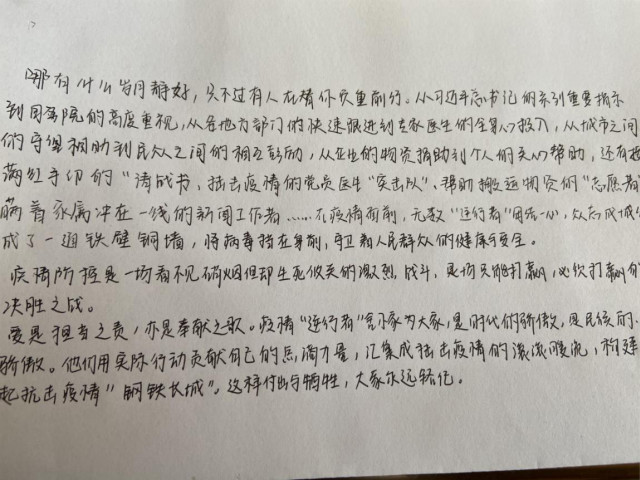 哪有什么岁月静好，只不过有人在替你负重前行。从习近平总书记的系列重要指示
到国务院的高度重视，从各地方部门的快速跟进到专家医生的全身心投入，从城市之间
的守望相助到民众之间的相互鼓励，从企业的物资捐助到个人的关心帮助，还有按
满红手印的“请战书、抗击疫情的党员医生“突击队”、帮助搬运物资的“志愿者
瞒着家属冲在一线的新闻工作者……在疫情面前，无数“逆行者”团结一心，众志成城
成了一道铁壁铜墙，将病毒挡在身前，守卫着人民群众的健康与安全。
疫情防控是一场看不见硝烟但却生死攸关的激烈战斗，是场只能打赢，必须打赢的
决胜之战。
爱是担当之责，亦是奉献之歌。疫情“逆行者”舍小家为大家，是时代的骄傲，是民族的
骄傲。他们用实际行动贡献自己的点滴力量，汇集成抗击疫情的滚滚暖流，构建
起抗击疫情“钢铁长城”。这样付出与牺牲，大家永远铭记。